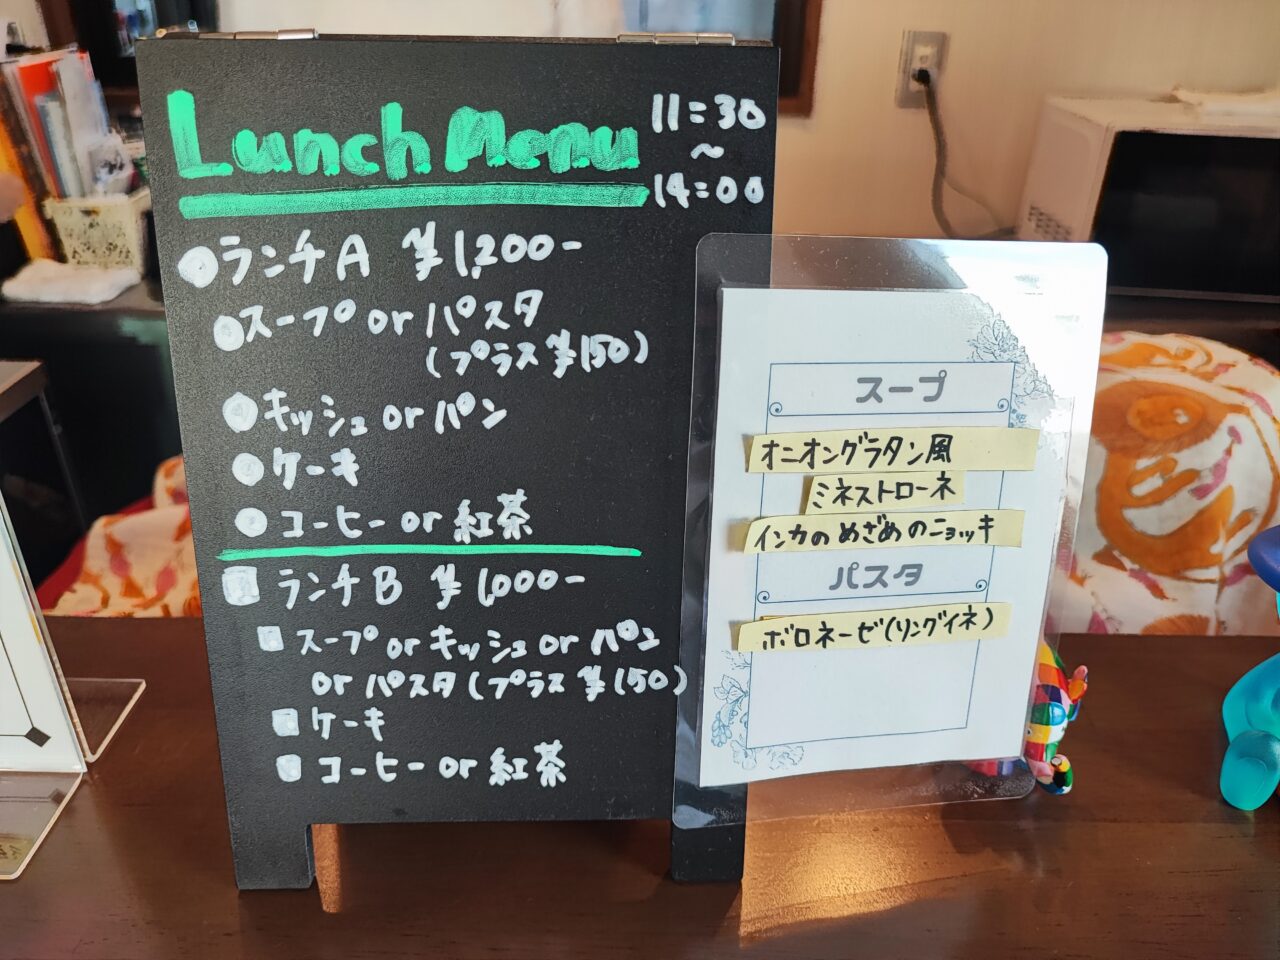 Lunch Menu
11:30
~
14:00
ランチA ¥1,200-
スープ or パスタ
(プラス ¥150)
キッシュ or パン
ケーキ
コーヒー or 紅茶
ランチB ¥1,000-
スープ or キッシュ or パン
or パスタ (プラス ¥150)
ケーキ
コーヒー or 紅茶
スープ
オニオングラタン風
ミネストローネ
インカのめざめのニョッキ
パスタ
ボロネーゼ(リングイネ)